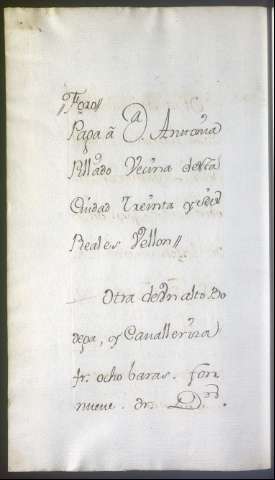 Foro//
Paga à Dª. Antonia
Pillado Vecina desta
Ciudad treinta y seis
Reales Vellon//
Otra de Un alto Bo
dega, y Cavalleriza
fr. ocho baras. fon
nueve. dr. D.